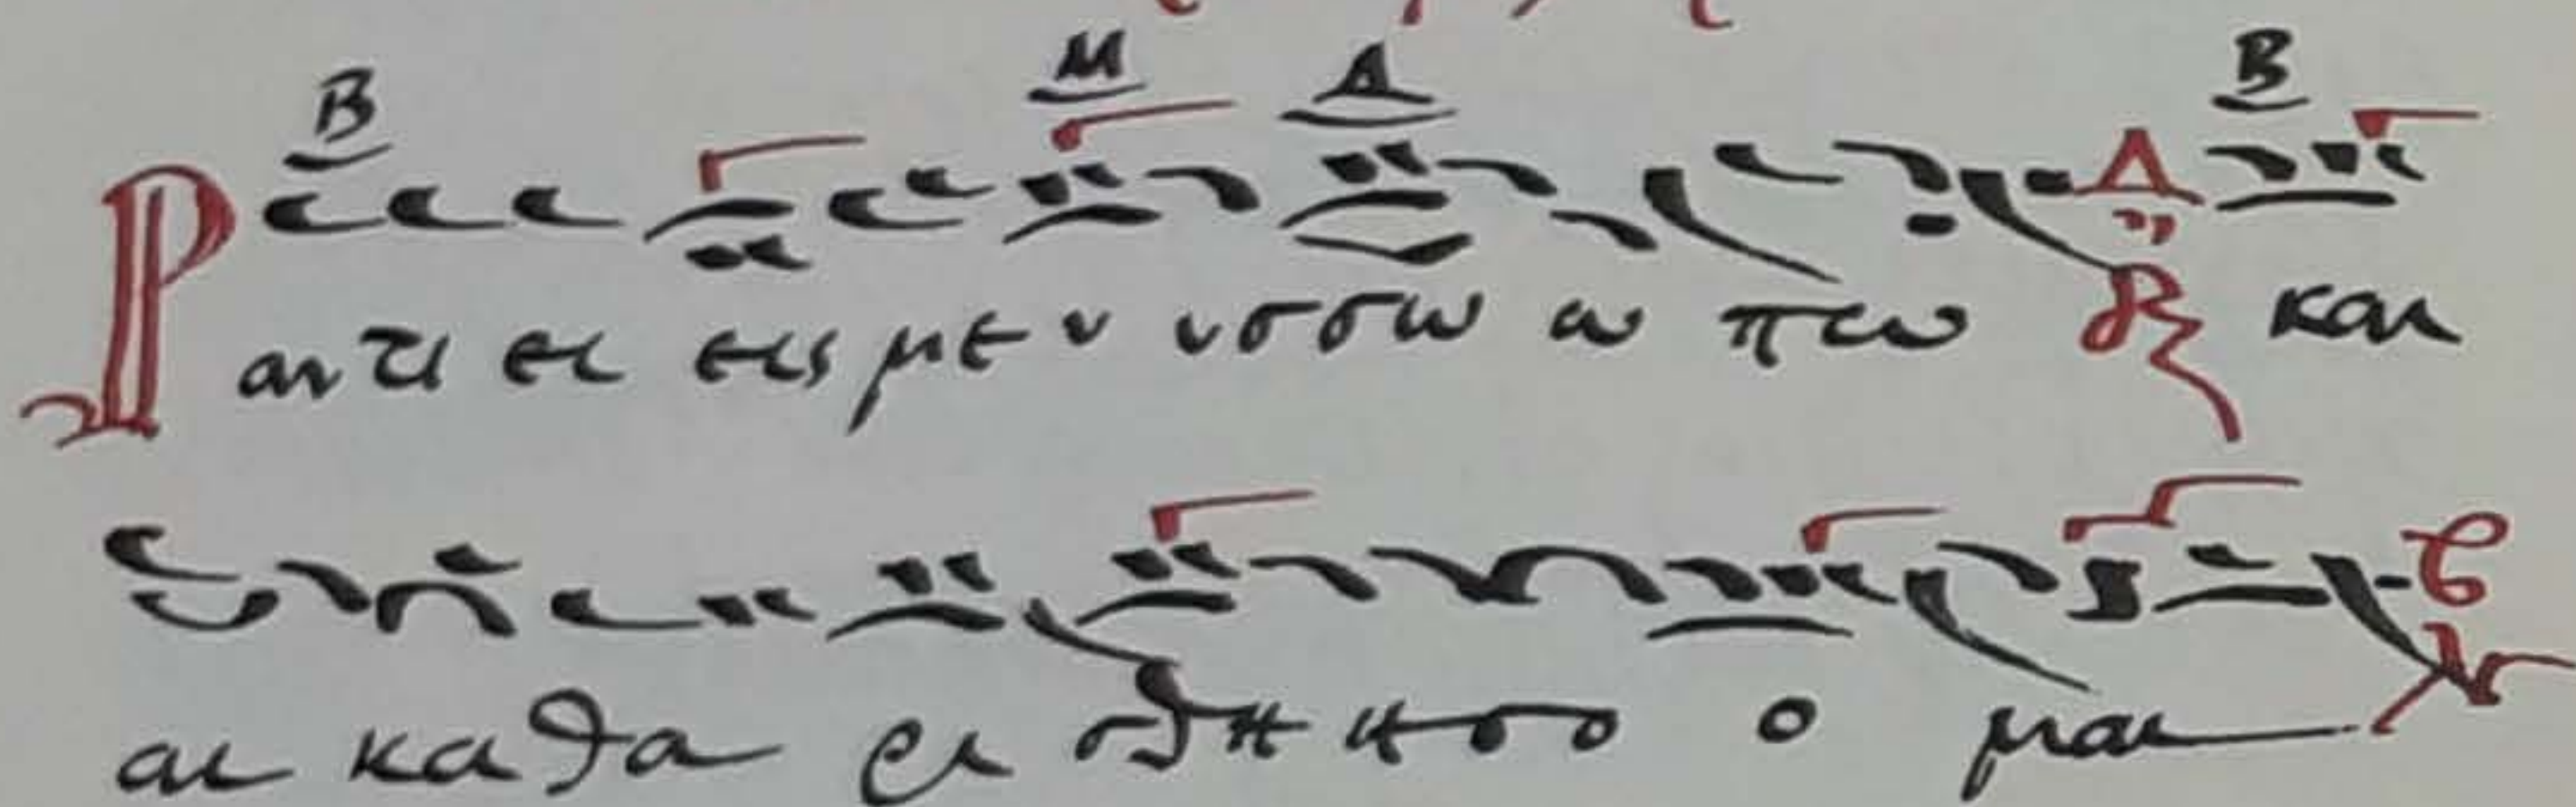 Β Μ Δ Β
Ραντι ει εις με υ υσσω ω πω Δ και
αι καθα ει σθη ησο ο μαι